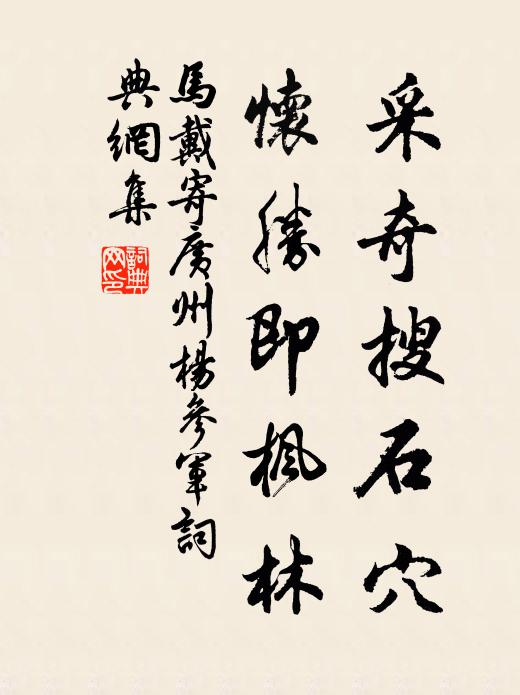 采奇搜石穴
懷勝即楓林
馬戴寄廣州楊參軍詞
典網集
詞典
网印